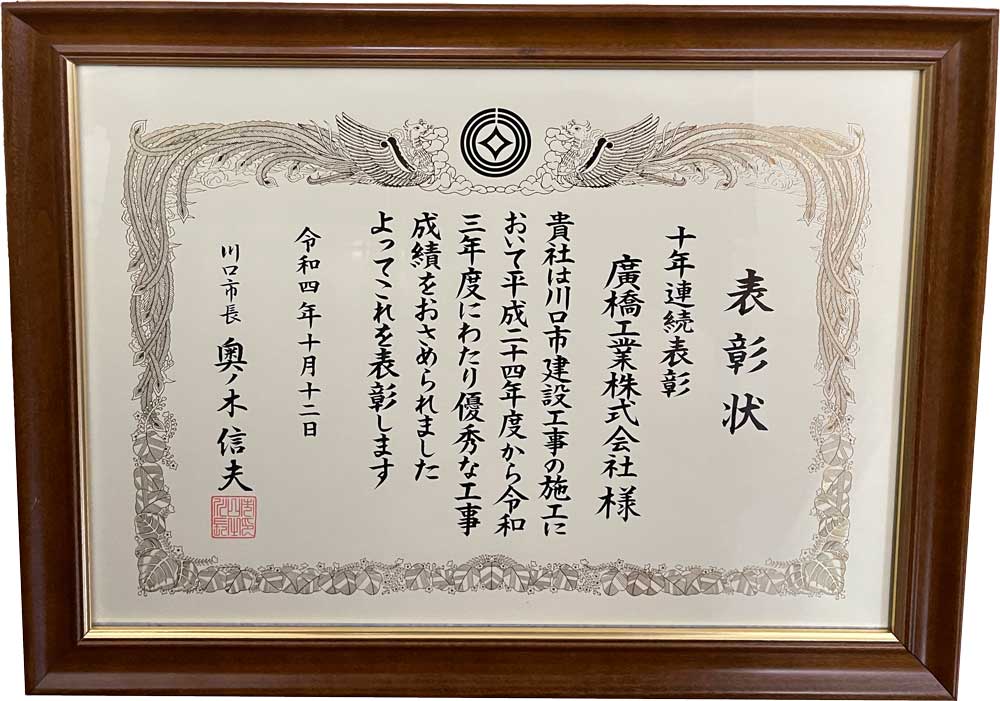 表彰状
十年連続表彰
廣橋工業株式会社 様
貴社は川口市建設工事の施工に
おいて平成二十四年度から令和
三年度にわたり優秀な工事
成績をおさめられました
よってこれを表彰します
令和四年十月十二日
川口市長 奥ノ木信夫